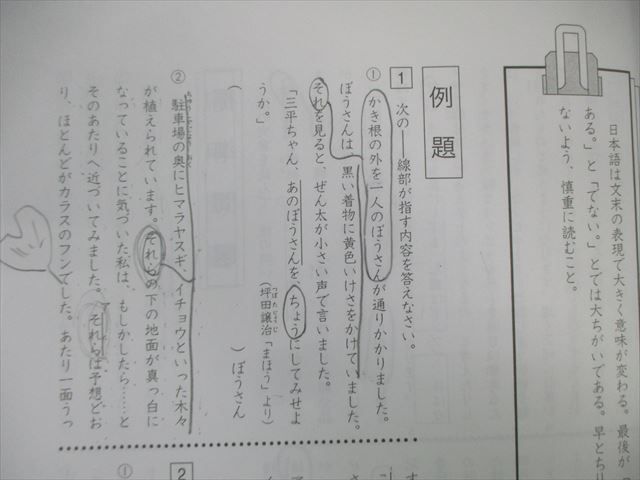 日本語は文末の表現で大きく意味が変わる。最後が「
ある。」と「でない。」とでは大ちがいである。早とちり
ないよう、慎重に読むこと。
例題
1 次の──線部が指す内容を答えなさい。
① かき根の外を一人のぼうさんが通りかかりました。
ぼうさんは黒い着物に黄色いけさをかけていました。
それを見ると、ぜん太が小さい声で言いました。
「三平ちゃん、あのぼうさんを、ちょうにしてみせよ
うか。」
(坪田譲治「まほう」より)
つぼたじょうじ
( )ぼうさん
② 駐車場の奥にヒマラヤスギ、イチョウといった木々
が植えられています。それらの下の地面が真っ白に
なっていることに気づいた私は、もしかしたら……と
そのあたりへ近づいてみました。それらは予想どお
り、ほとんどがカラスのフンでした。あたり一面うっ
2
①